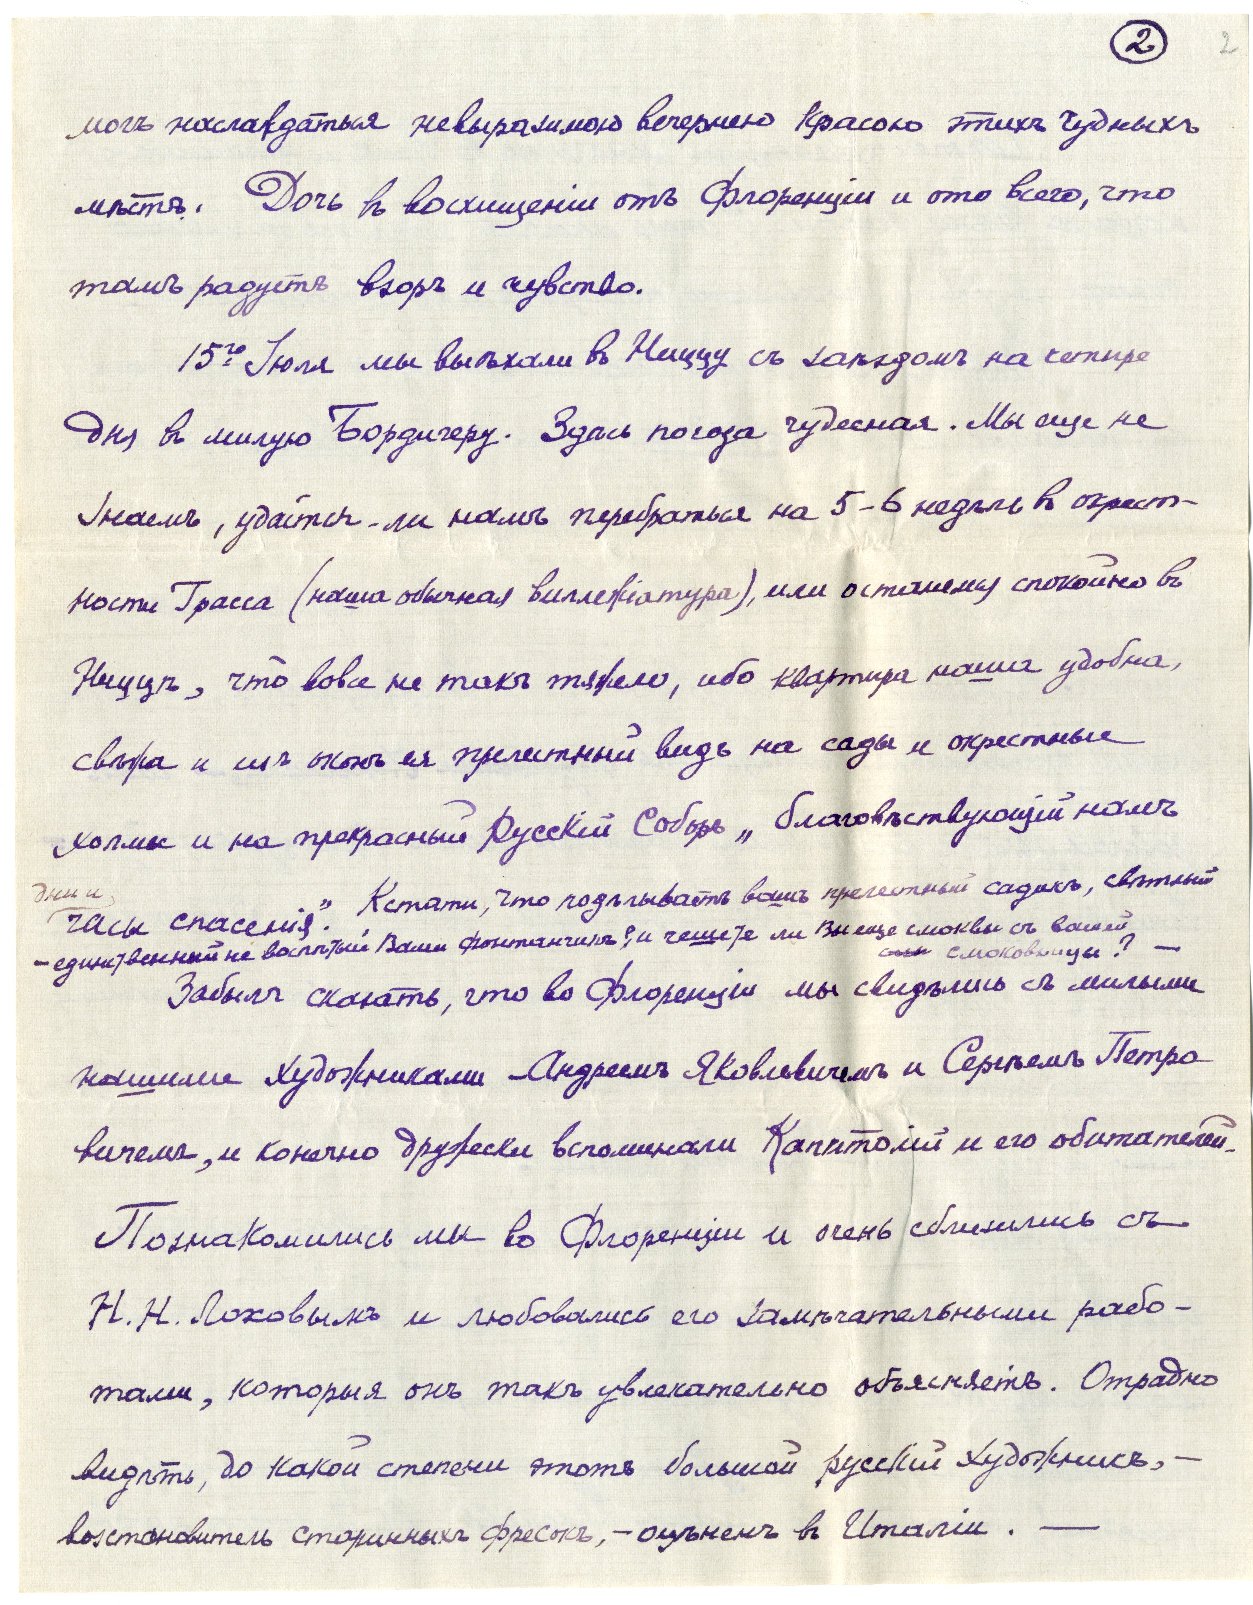 2 2
могъ наслаждаться невыразимою вечернею красою этихъ чудныхъ
мѣстъ. Дочь въ восхищеніи отъ Флоренціи и ото всего, что
тамъ радуетъ взоръ и чувство.
15го Іюля мы выѣхали въ Ниццу съ заѣздомъ на четыре
дня въ милую Бордигеру. Здѣсь погода чудесная. Мы еще не
знаемъ, удастся-ли намъ перебраться на 5-6 недѣль въ окрест-
ности Грасса (наша обычная виллежіатура), или останемся спокойно въ
Ниццѣ, что вовсе не такъ тяжело, ибо квартира наша удобна,
свѣжа и изъ оконъ ея прелестный видъ на сады и окрестные
холмы и на прекрасный Русскій Соборъ „благовѣствующій намъ
дни и
часы спасенія“. Кстати, что подѣлываетъ вашъ прелестный садикъ, свѣтлый
- единственный не воспѣтый Вами фонтанчикъ?, и кушаете ли Вы еще смоквы съ вашей
смоковницы? —
Забылъ сказать, что во Флоренціи мы свидѣлись съ милыми
нашими художниками Андреемъ Яковлевичемъ и Сергѣемъ Петро
вичемъ, и конечно дружески вспоминали Капитолій и его обитателей.
Познакомились мы во Флоренціи и очень сблизились съ
Н. Н. Лоховымъ и любовались его замѣчательными рабо-
тами, которыя онъ такъ увлекательно объясняетъ. Отрадно
видѣть, до какой степени этотъ большой русскій художникъ, —
возстановитель старинныхъ фресокъ, — оцѣненъ въ Италіи. —